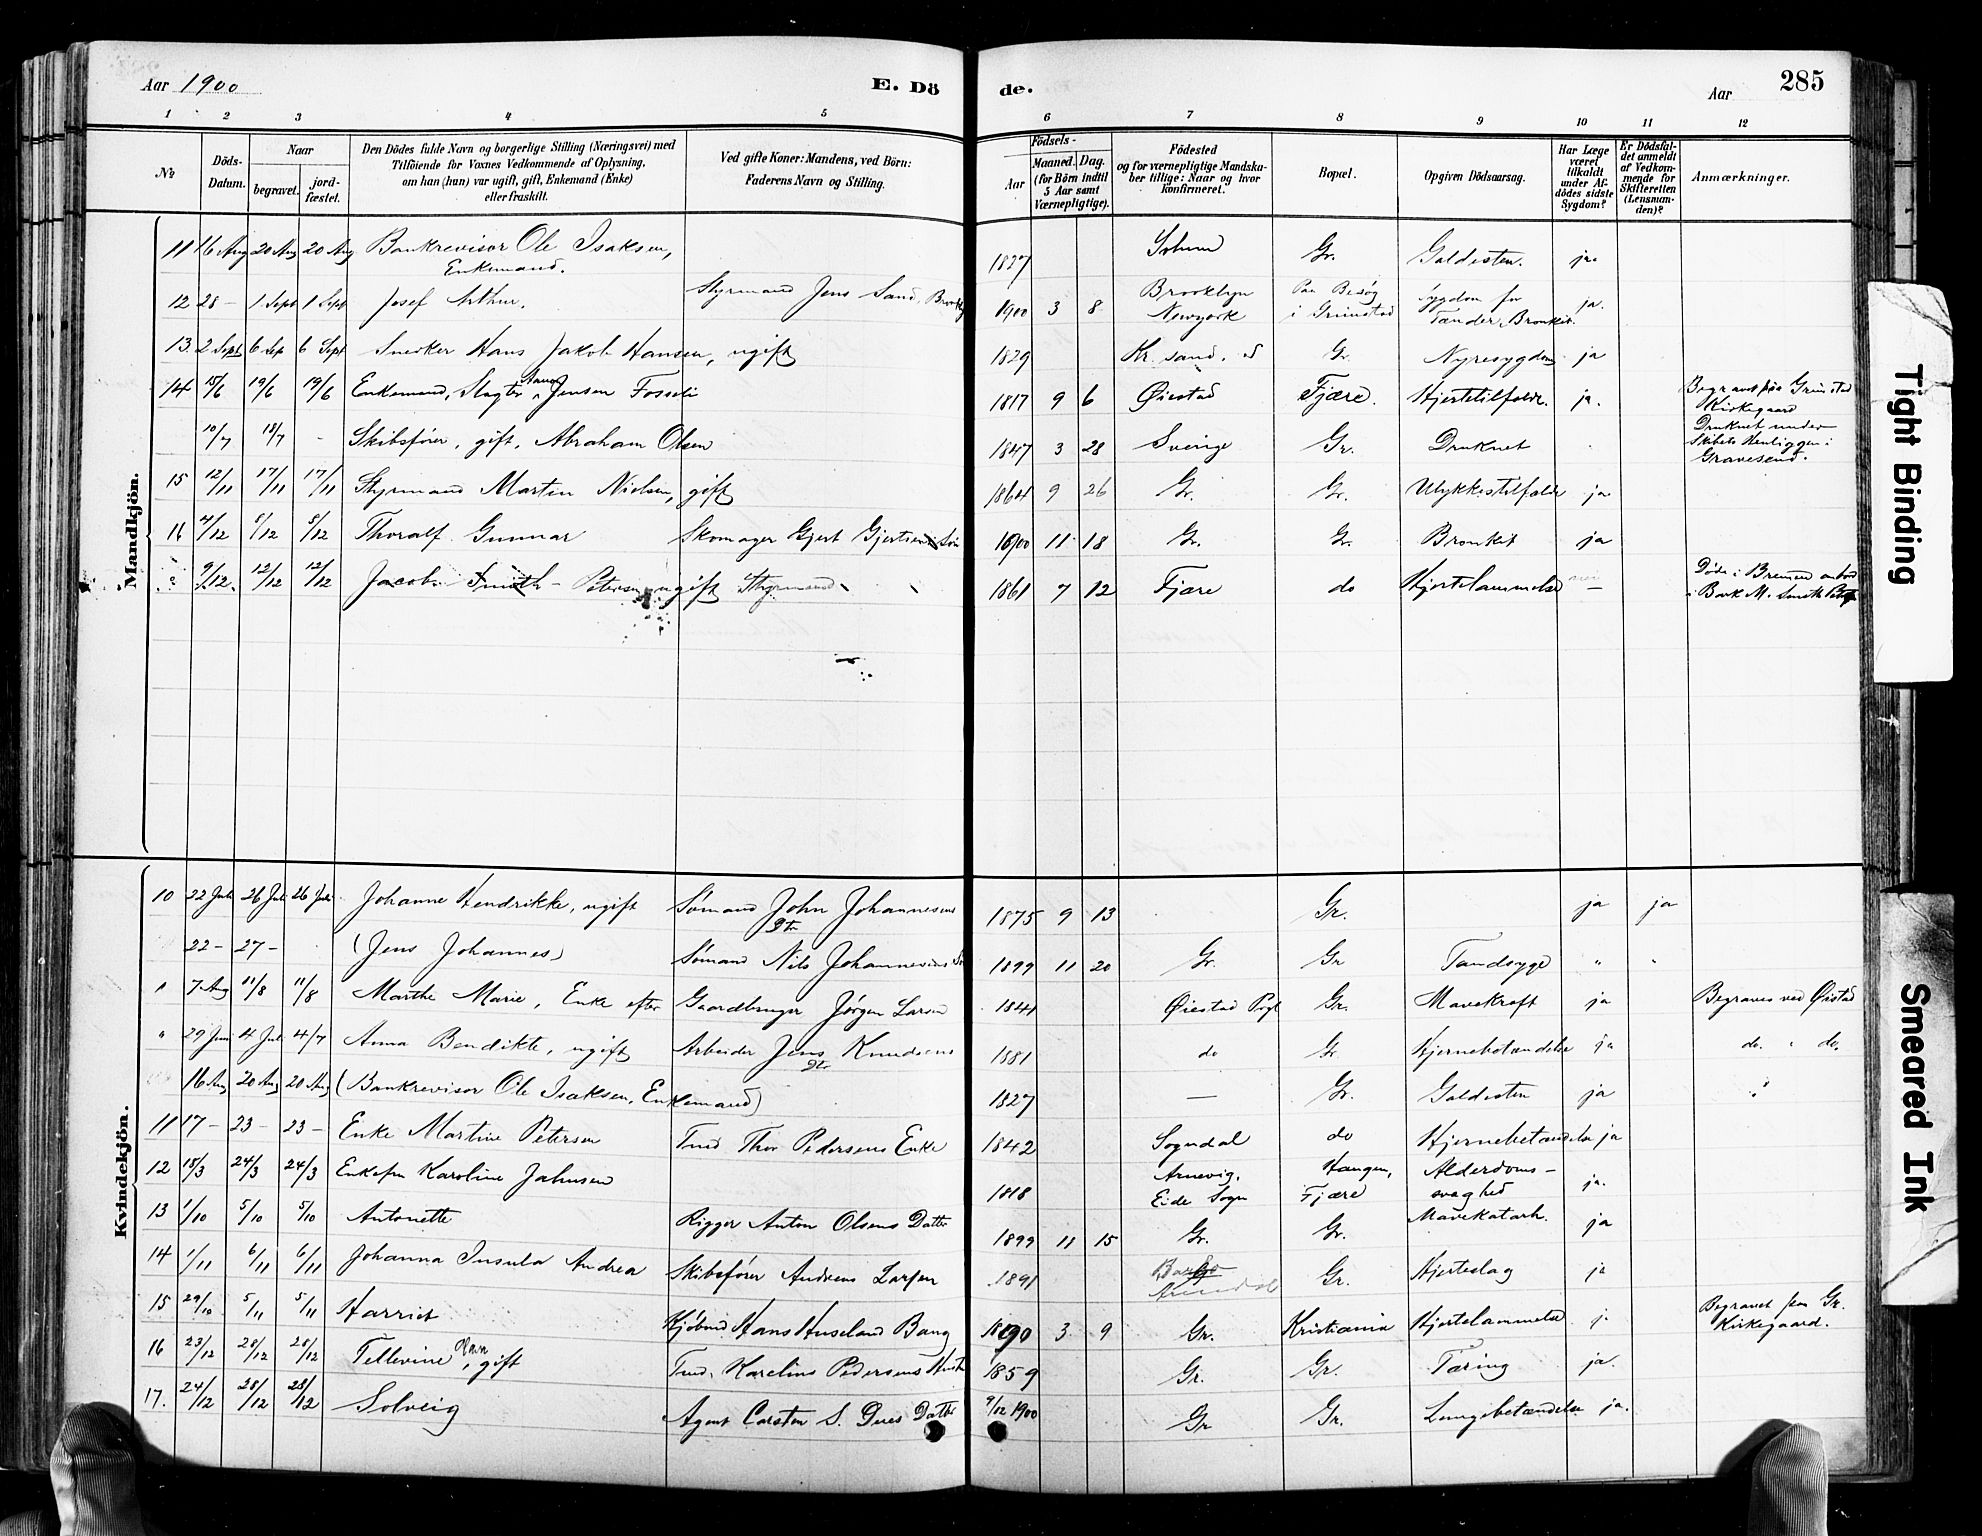 Aar 1900
E. Dö
de.
Aar
285
1 2 3 4 5 6 7 8 9 10 11 12
№
Döds-Datum.
Naar
begravet.
jord-fæstet.
Den Dödes fulde Navn og borgerlige Stilling (Næringsvei) med
Tilföiende for Voxnes Vedkommende af Oplysning,
om han (hun) var ugift, gift, Enkemand (Enke)
eller fraskilt.
Ved gifte Koner: Mandens, ved Börn:
Faderens Navn og Stilling.
Födsels-
Aar
Maaned. Dag.
(for Börn indtil
5 Aar samt
Værnepligtige).
Födested
og for værnepligtige Mandska-
ber tillige: Naar og hvor
konfirmeret.
Bopæl.
Opgiven Dödsaarsag.
Har Læge
været
tilkaldt
under Af-
dödes sidste
Sygdom?
Er Dödsfal-
det anmeldt
af Vedkom-
mende for
Skifteretten
(Lensman-
den)?
Anmærkninger.
Mandkjön.
11 16 Aug 20 Aug 20 Aug Bankrevisor Ole Isaksen, Enkemand. 1827 Gr. Galdesten. ja
12 28 - 1 Sept 1 Sept Josef Arthur. Styrmand Jens Sand, 1900 3 8 Brooklyn Newyork Paa Besøg i Grimstad Sygdom for Tænder, Bronkit. ja.
13. 2 Sept 6 Sep 6 Sept Snedker Hans Jakob Hansen, ugift 1829 Kr. sand. Gr. Nyresygdom ja
14 15/6 19/6 19/6 Enkemand, Slagter Jensen Fosseli 1817 9 6 Øiestad Fjære. Hjertetilfælde. ja. Begravet paa Grimstad Kirkegaard
10/7 18/7 - Skibsfører, gift, Abraham Olsen 1847 3 28 Sverige Gr. Druknet Druknet under Skibets Henliggen i Gravesend.
15 12/11 17/11 17/11 Styrmand Martin Nielsen, gift 1864 9 26 Gr. Gr. Ulykkestilfælde ja
16 4/12 5/12 5/12 Thoralf Gunnar Skomager Gjert Gjertsens Søn 1900 11 18 Gr. Gr. Bronkit ja
9/12. 12/12 12/12 Jacob Smith-Petersen ugift Styrmand 1861 7 12 Fjære do Hjertelammelse - Døde i Bremen ombord i Bark M. Smith
Kvindekjön.
10 22 Juli 26 Juli 26 Juli Johanne Hendrikke, ugift Sømand John Johannesens Dtr 1875 9 13 Gr. ja ja
22 - 27 - (Jens Johannes) Sømand Nils Johannesens 1899 11 20 Gr. Gr Tandsyge " "
" 7. Aug 11/8 11/8 Marthe Marie, Enke efter Gaardbruger Jørgen Larsen 1841 Øiestad Pgl Gr. Mavekræft ja Begraves ved Øiestad
" 29 Juni 4 Juli 4/7 Anna Bendikte, ugift Arbeider Jens Knudsens Dtr 1881 do Gr. Hjernebetændelse ja do. " do.
16 Aug 20 Aug 20 Aug (Bankrevisor Ole Isaksen, Enkemand) 1827 - Gr. Galdesten ja "
11 17 - 23 - 23 - Enke Martine Petersen Tmd Thor Pedersens Enke 1842 Sogndal do Hjernebetændelse ja
12 18/3 24/3 24/3 Enkefru Karoline Jahnsen 1818 Arnevig, Eide Sogn Haugen, Fjære Alderdoms-svaghed ja.
13 1/10 5/10 5/10 Antonette Rigger Anton Olsens Datter 1899 11 15 Gr. Gr. Mavekatarh. ja
14 1/11 6/11 6/11 Johanna Insula Andrea Skibsfører Andreas Larsen 1891 Arendal Gr. Hjerteslag ja
15 29/10 5/11 5/11 Harriet Kjøbmd Hans Huseland Bang 1890 3 9 Gr. Kristiania Hjertelammelse j. Begravet paa Gr. Kirkegaard.
16 23/12 28/12 28/12 Tellevine Olava, gift Tmd. Karelius Pedersens Hustru 1859 Gr. Gr. Tæring ja.
17. 24/12 28/12 28/12 Solveig Agent Carsten S. Dues Datter 9/12 1900 Gr Gr. Lungebetændelse ja.
Tight Binding
Smeared Ink